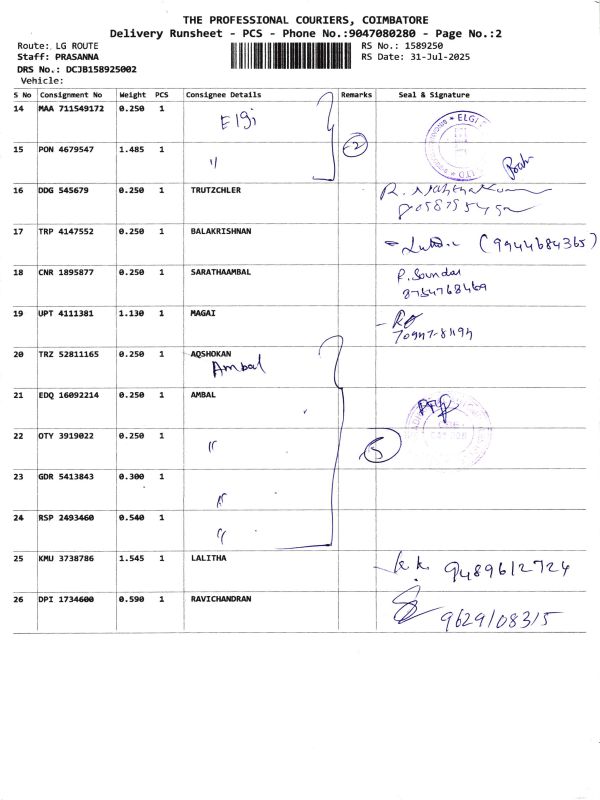 THE PROFESSIONAL COURIERS, COIMBATORE
Delivery Runsheet - PCS - Phone No.:9047080280 - Page No.:2
Route: LG ROUTE RS No.: 1589250
Staff: PRASANNA RS Date: 31-Jul-2025
DRS No.: DCJB158925002
Vehicle:
S No Consignment No Weight PCS Consignee Details Remarks Seal & Signature
14 MAA 711549172 0.250 1 Elgi ELGI
15 PON 4679547 1.485 1 " 2
16 DDG 545679 0.250 1 TRUTZCHLER
17 TRP 4147552 0.250 1 BALAKRISHNAN (9944684365)
18 CNR 1895877 0.250 1 SARATHAAMBAL P. Soundar
8754768469
19 UPT 4111381 1.130 1 MAGAI
20 TRZ 52811165 0.250 1 AQSHOKAN
Ambal
21 EDQ 16092214 0.250 1 AMBAL
22 OTY 3919022 0.250 1 " 5
23 GDR 5413843 0.300 1 "
24 RSP 2493460 0.540 1 "
25 KMU 3738786 1.545 1 LALITHA k.k. 9489612724
26 DPI 1734600 0.590 1 RAVICHANDRAN 9629108315